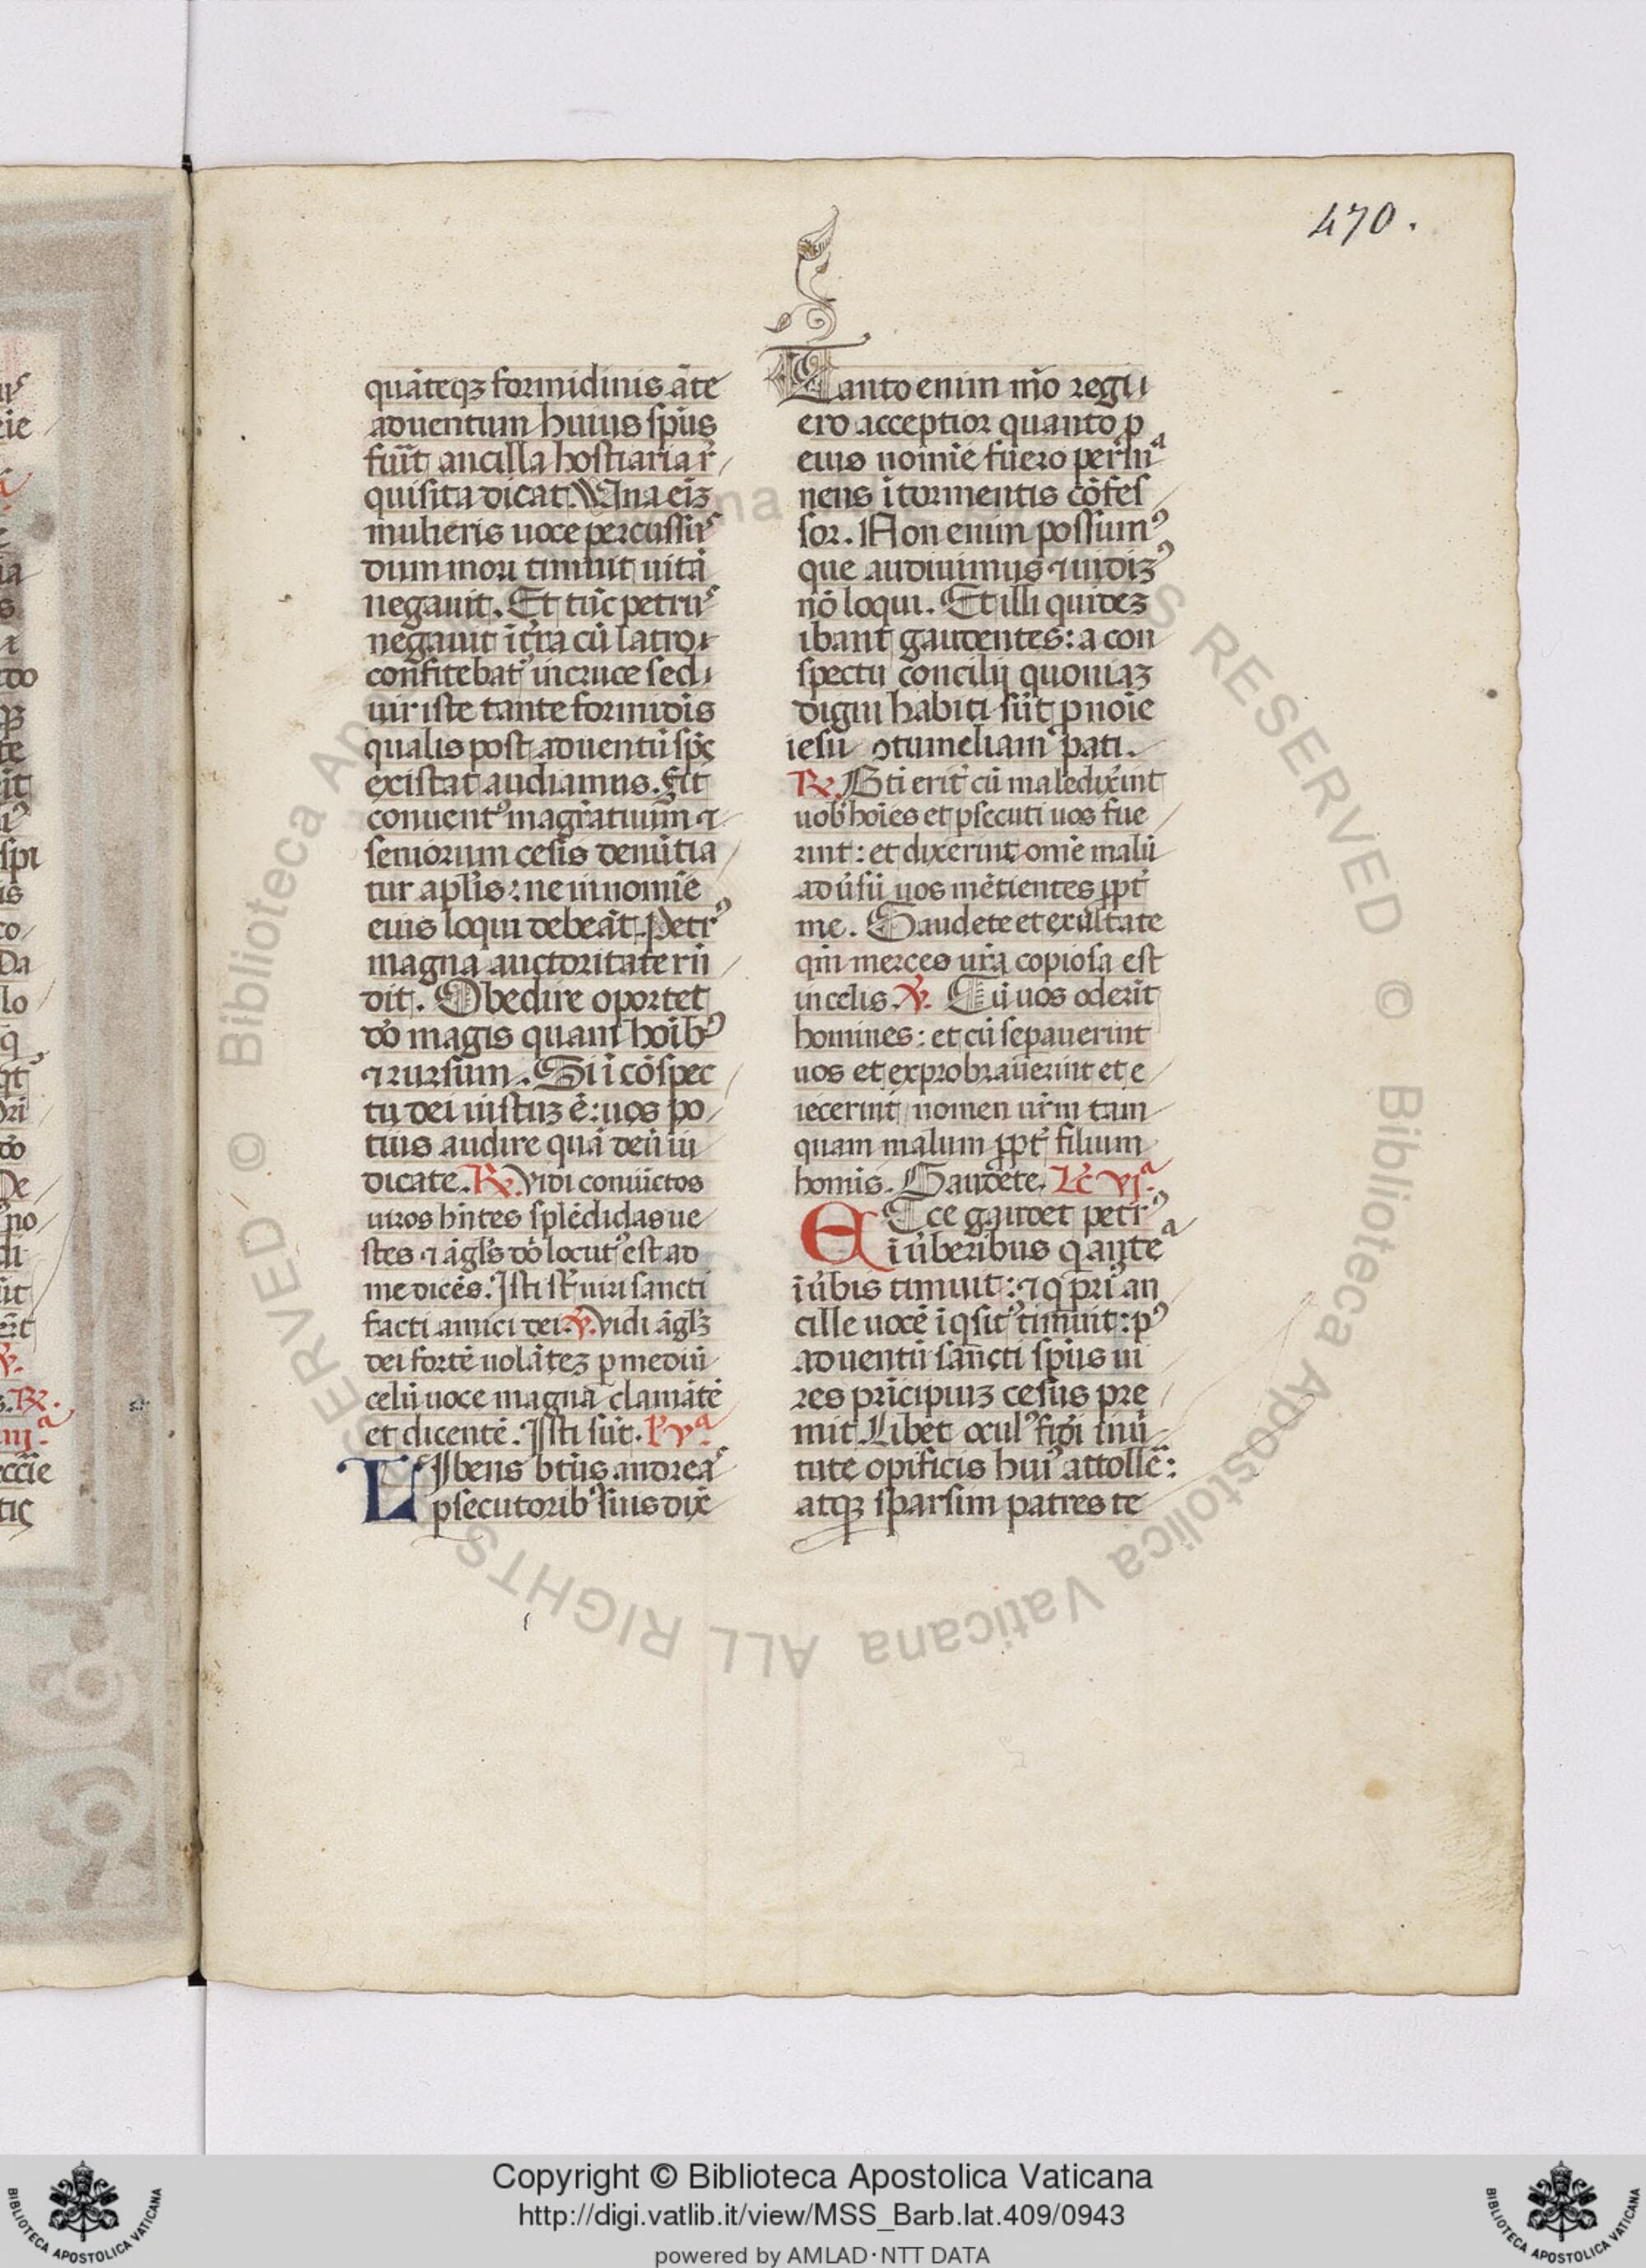 470.
quāteqꝫ formidinis āte
aduentum huius sp̄us
fuīt ancilla hostiaria r̄
quisita dicat. Una eīꝫ
mulieris uoce percussus
dum mori timuit uitā
negauit. Et tūc petrus
negauit ī t̄ra cū latro
confitebat᷑ in cruce sed
uir iste tante formidīs
qualis post aduentū sp̄s
existat audiamus. Fit
conuentꝰ magr̄atuum ⁊
seniorum cesis denūtia
tur aplis: ne in nomīe
eius loqui debeāt. Petrꝰ
magna auctoritate rn̄
dit. Obedire oportet
dō magis quam hoībꝰ
⁊ rursum. Si ī cōspec
tu dei iustuꝫ ē: uos po
tius audire quā deū iu
dicate. ℟. Vidi coniūctos
uiros hn̄tes splēdidas ue
stes ⁊ āgls dō locutꝰ est ad
me dicēs. Isti st̄ uiri sancti
facti amici dei. ℣. Vidi āglꝫ
dei fortē uolāteꝫ p mediū
celū uoce magna clamātē
et dicentē. Isti sūt. L̄ vᵃ.
LIbens btūs andreas
psecutoribꝰ suis dix̄
Tanto enim mō regi
ero acceptior quanto p
eius nomīe fuero permᵃ
nens ī tormentis cōfes
sor. Non enim possumꝰ
que audiuimus ⁊ uidiꝫꝰ
nō loqui. Et illi quideꝫ
ibant gaudentes: a con
spectu concilij quoniaꝫ
digni habiti sūt p noīe
iesu ꝯtumeliam pati.
℟. Bti erit᷑ cū maledix̄int
uob̄ hoīes et psecuti uos fue
rint: et dixerint om̄e malū
aduūsū uos mētientes ppt᷑
me. Gaudete et exultate
qm̄ merces ur̄a copiosa est
in celis. ℣. Cū uos oderīt
homines: et cū sepauerint
uos et exprobrauerint et e
iecerint nomen ur̄m tam
quam malum ppt᷑ filium
homīs. Gaudete. Lc̄ vjᵃ.
ECce gaudet petrꝰ
ī ūberibus q anteᵃ
ī ūbis timuit: ⁊ q pri an
cille uocē īqsitꝰ timuit: pꝰ
aduentū sancti sp̄us ui
res prīcipuꝫ cesus pre
mit. Libet oculꝰ fidi ī uir
tute opificis huiꝰ attollē:
atqꝫ sparsim patres te
Copyright © Biblioteca Apostolica Vaticana
http://digi.vatlib.it/view/MSS_Barb.lat.409/0943
powered by AMLAD·NTT DATA
BIBLIOTECA APOSTOLICA VATICANA
BIBLIOTECA APOSTOLICA VATICANA